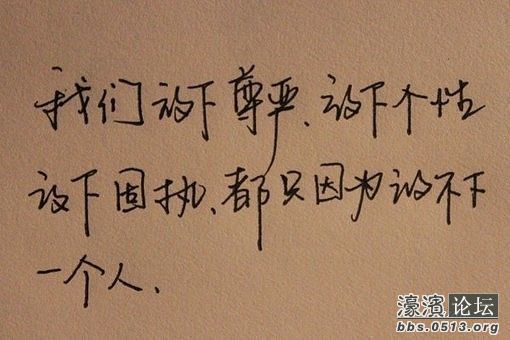 我们放下尊严、放下个性
放下固执、都只因为放不下
一个人、
濠滨论坛
bbs.0513.org